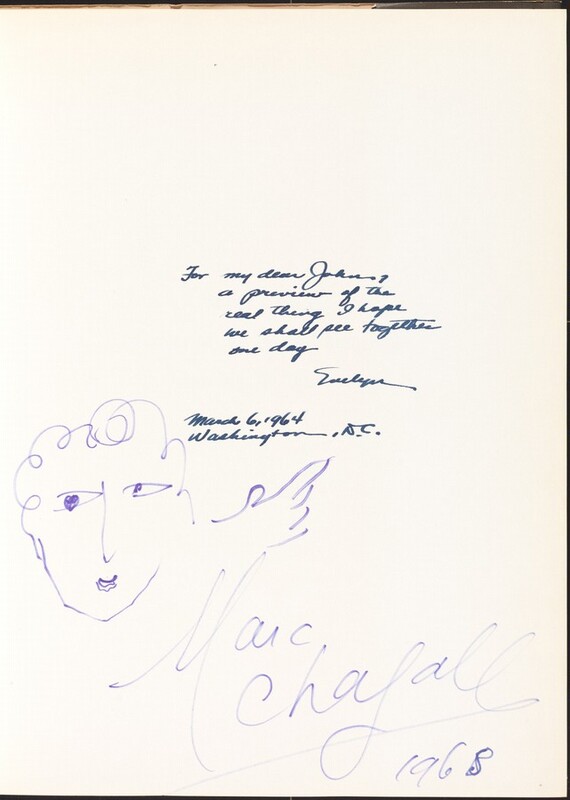 For my dear John,
a preview of the
real thing I hope
we shall see together
one day
Evelyn
March 6, 1964
Washington, D.C.
Marc
Chagall
1968